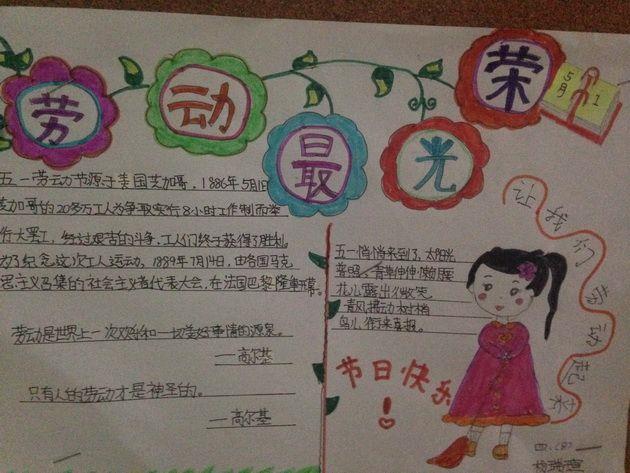 劳动最光荣
5月1
五一劳动节源于美国芝加哥，1886年5月1日
芝加哥的20多万工人为争取实行8小时工作制而举
行大罢工，经过艰苦的斗争，工人们终于获得了胜利。
为了纪念这次工人运动，1889年7月14日，由各国马克
思主义召集的社会主义者代表大会，在法国巴黎隆重开幕。
劳动是世界上一次欢乐和一切美好事情的源泉。
——高尔基
只有人的劳动才是神圣的。
——高尔基
五一悄悄来到了，太阳光
花儿露出微笑
鸟儿衔来喜报。
节日快乐！
让我们劳动起来
四、(8)